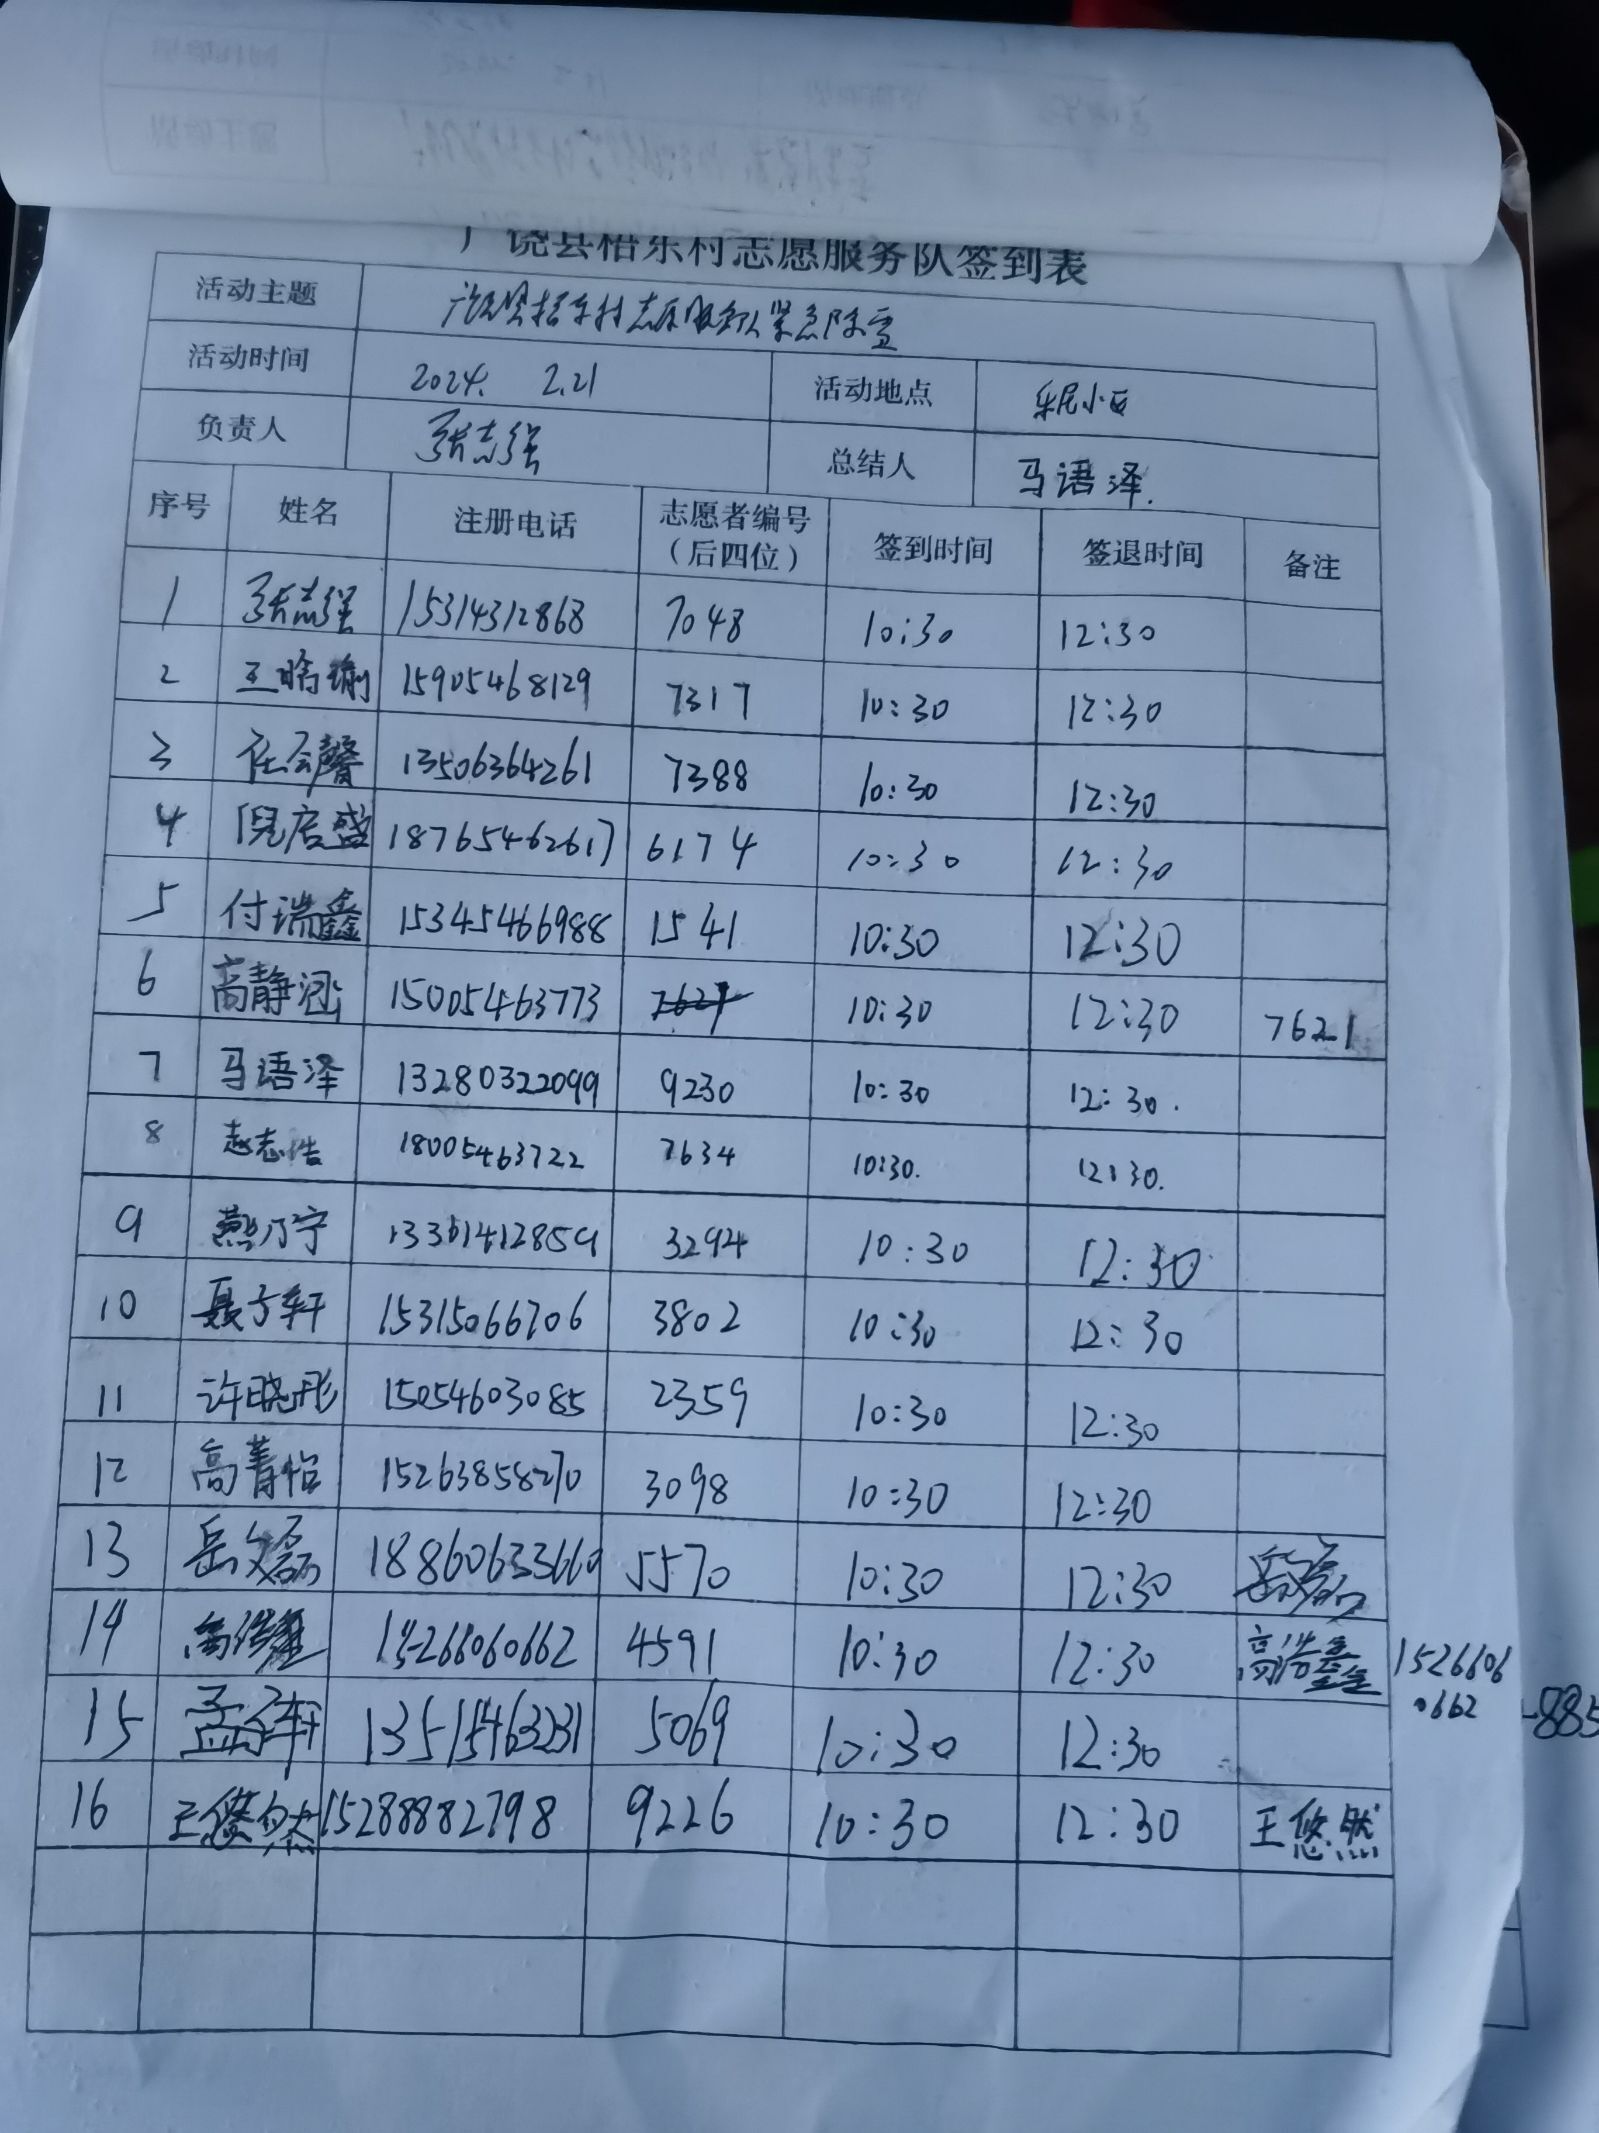 广饶县梧东村志愿服务队签到表
活动主题 广饶县梧东村志愿服务队紧急除雪
活动时间 2024. 2.21 活动地点 乐民小区
负责人 张志强 总结人 马语泽.
序号 姓名 注册电话 志愿者编号（后四位） 签到时间 签退时间 备注
1 张志强 15314312868 7048 10:30 12:30
2 王晗瑜 15905468129 7317 10:30 12:30
3 任会馨 13506364261 7388 10:30 12:30
4 倪启盛 18765462617 6174 10:30 12:30
5 付瑞鑫 15345466988 1541 10:30 12:30
6 高静涵 15005463773 10:30 12:30 7621
7 马语泽 13280322099 9230 10:30 12:30.
8 赵志浩 18005463722 7634 10:30. 12:30.
9 燕乃宁 13361412859 3294 10:30 12:30
10 聂子轩 15315066706 3802 10:30 12:30
11 许晓彤 15054603085 2359 10:30 12:30
12 高菁怡 15263858270 3098 10:30 12:30
13 岳文磊 18860633660 5570 10:30 12:30
14 高浩鑫 15266060662 4591 10:30 12:30 高浩鑫 1526606
0662
-885
15 孟子轩 13515463231 5069 10:30 12:30
16 王悠然 15288882798 9226 10:30 12:30 王悠然